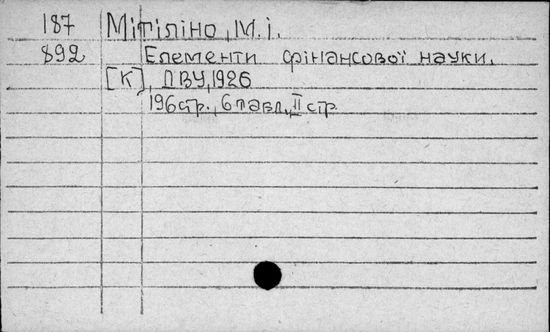 187 Мітіліно, М. і.
892 Елементи фінансової науки.
[К], ДВУ, 1926
196 стр., 6 табл., II стр.